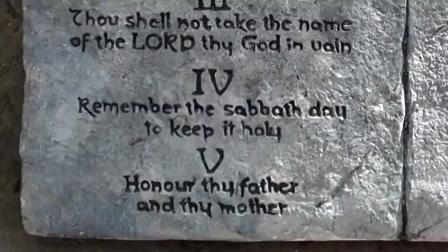 III
Thou shell not take the name
of the LORD thy God in vain
IV
Remember the sabbath day
to keep it holy
V
Honour thy father
and thy mother